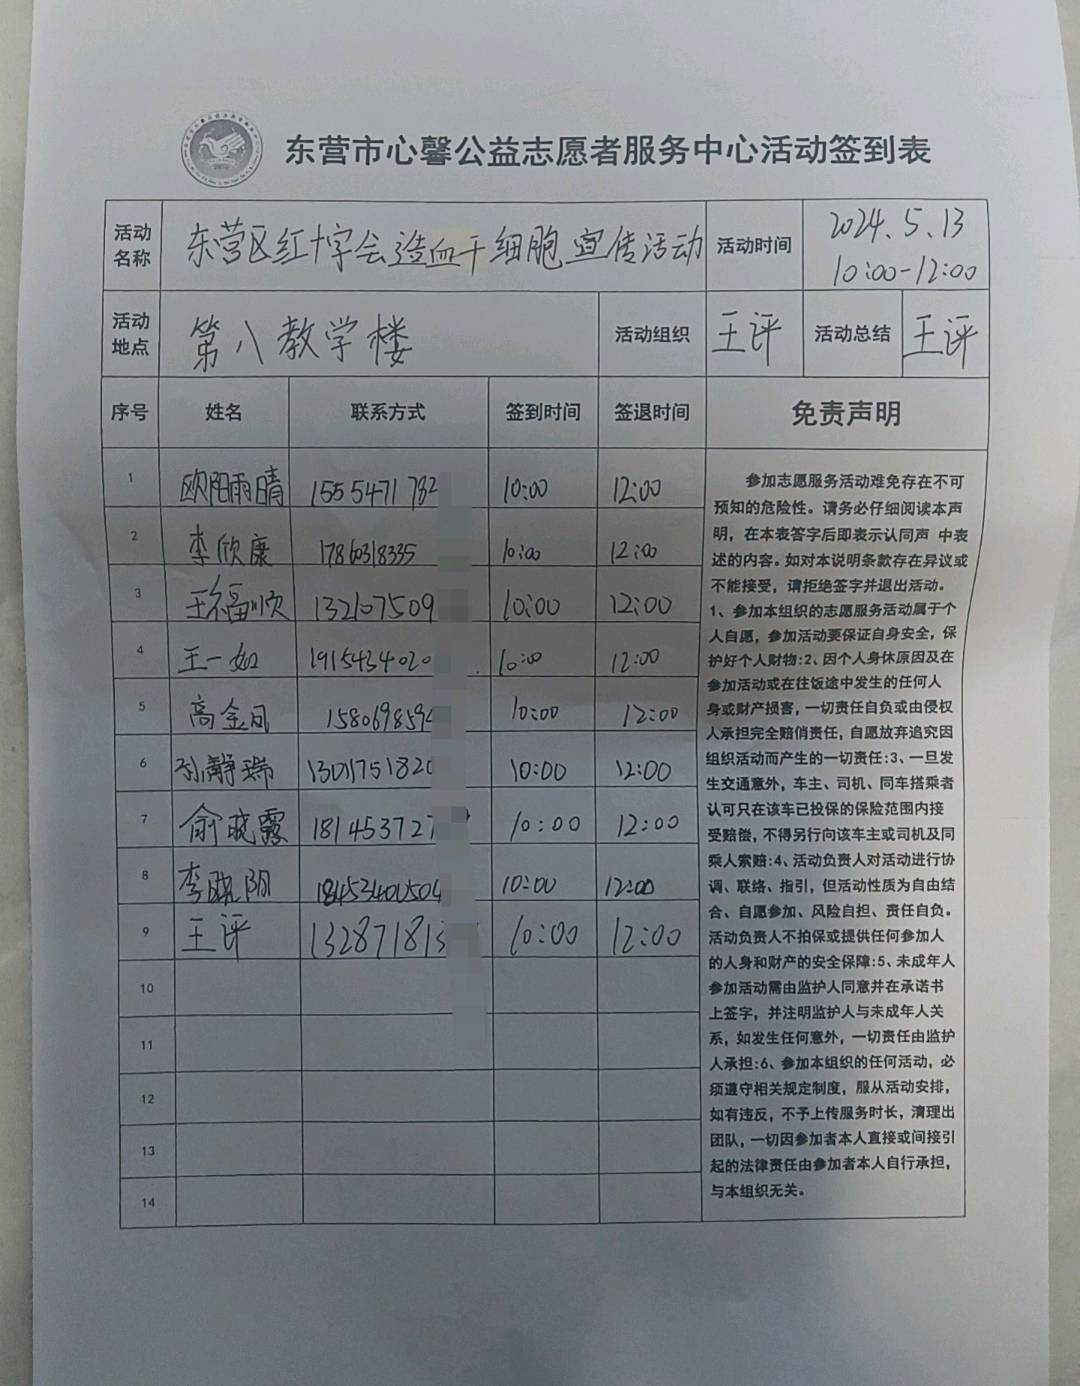 东营市心馨公益志愿者服务中心活动签到表
活动名称 东营区红十字会造血干细胞宣传活动 活动时间 2024.5.13 10:00-12:00
活动地点 第八教学楼 活动组织 王评 活动总结 王评
序号 姓名 联系方式 签到时间 签退时间 免责声明
1 欧阳雨晴 1555471782 10:00 12:00
2 李欣康 1786318335 10:00 12:00
3 王福顺 132107509 10:00 12:00
4 王一如 1915434020 10:00 12:00
5 高金凤 158069859 10:00 12:00
6 孙静瑞 1301751820 10:00 12:00
7 俞晓露 181453727 10:00 12:00
8 李晓阴 18453400504 10:00 12:00
9 王评 132871813 10:00 12:00
10
11
12
13
14
参加志愿服务活动难免存在不可
预知的危险性。请务必仔细阅读本声
明，在本表答字后即表示认同声 中表
述的内容。如对本说明条款存在异议或
不能接受，请拒绝签字并退出活动。
1、参加本组织的志愿服务活动属于个
人自愿，参加活动要保证自身安全，保
护好个人财物:2、因个人身休原因及在
参加活动或在往饭途中发生的任何人
身或财产损害，一切责任自负或由侵权
人承担完全赔俏责任，自愿放弃追究因
组织活动而产生的一切责任:3、一旦发
生交通意外，车主、司机、同车搭乘者
认可只在该车已投保的保险范围内接
受赔偿，不得另行向该车主或司机及同
乘人索赔:4、活动负责人对活动进行协
调、联络、指引，但活动性质为自由结
合、自愿参加、风险自担、责任自负。
活动负责人不拍保或提供任何参加人
的人身和财产的安全保障:5、未成年人
参加活动需由监护人同意并在承诺书
上签字，并注明监护人与未成年人关
系，如发生任何意外，一切责任由监护
人承担:6、参加本组织的任何活动，必
须遵守相关规定制度，服从活动安排，
如有违反，不予上传服务时长，清理出
团队，一切因参加者本人直接或间接引
起的法律责任由参加者本人自行承担，
与本组织无关。